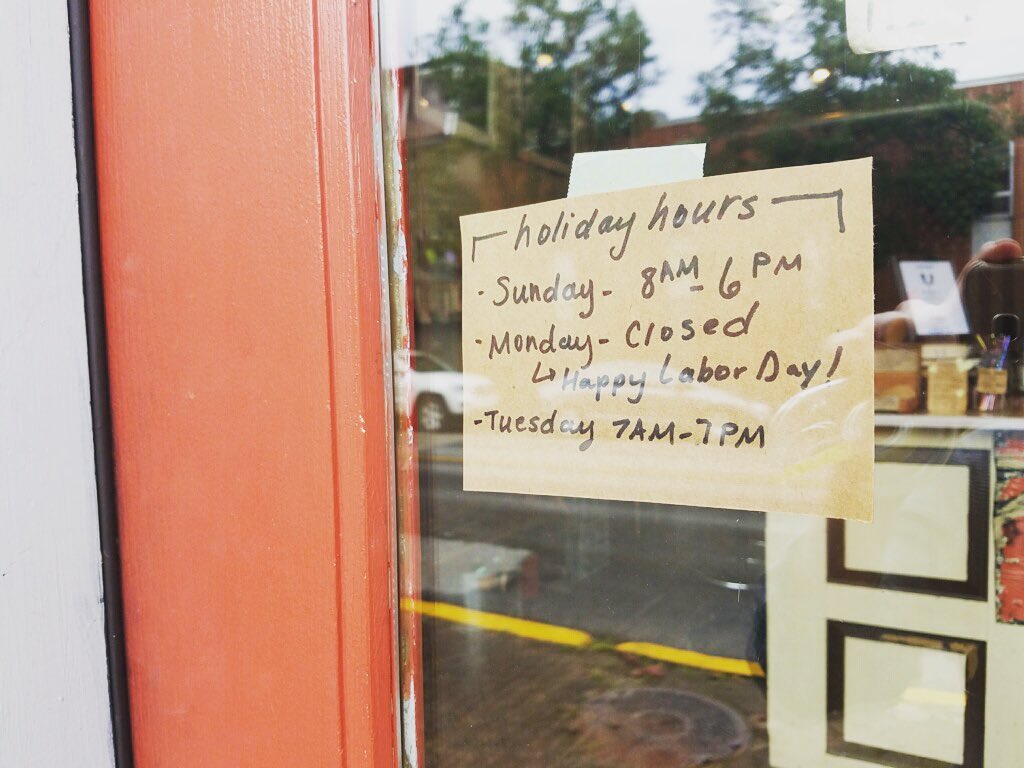 holiday hours
· Sunday - 8AM - 6PM
· Monday - Closed
↳ Happy Labor Day!
- Tuesday 7AM - 7PM